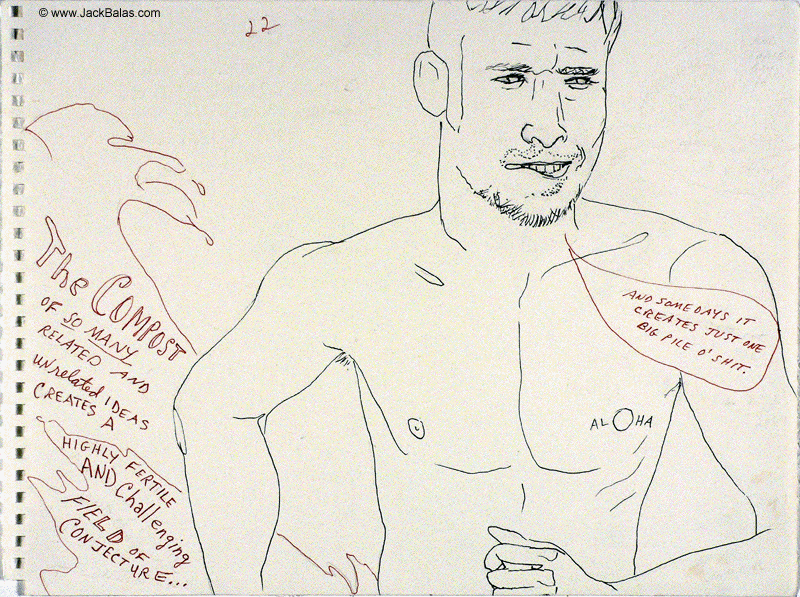 © www.JackBalas.com
22
The COMPOST
OF SO MANY
RELATED AND
UNrelated IDEAS
CREATES A
HIGHLY FERTILE
AND Challenging
FIELD OF
CONJECTURE...
AND SOME DAYS IT
CREATES JUST ONE
BIG PILE O' SHIT.
ALOHA